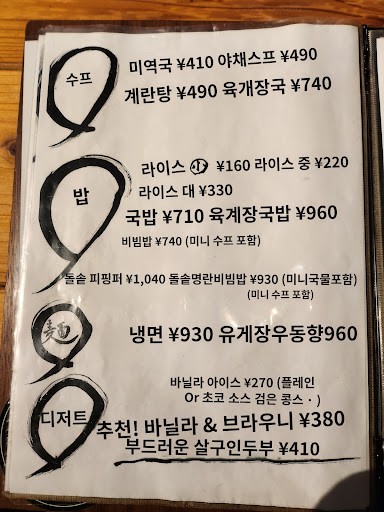 수프
미역국 ¥410 야채스프 ¥490
계란탕 ¥490 육개장국 ¥740
밥
라이스 小 ¥160 라이스 중 ¥220
라이스 대 ¥330
국밥 ¥710 육계장국밥 ¥960
비빔밥 ¥740 (미니 수프 포함)
돌솥 피핑퍼 ¥1,040 돌솥명란비빔밥 ¥930 (미니국물포함)
(미니 수프 포함)
麺
냉면 ¥930 유게장우동향960
바닐라 아이스 ¥270 (플레인
Or 초코 소스 검은 콩스 · )
디저트
추천! 바닐라 & 브라우니 ¥380
부드러운 살구인두부 ¥410